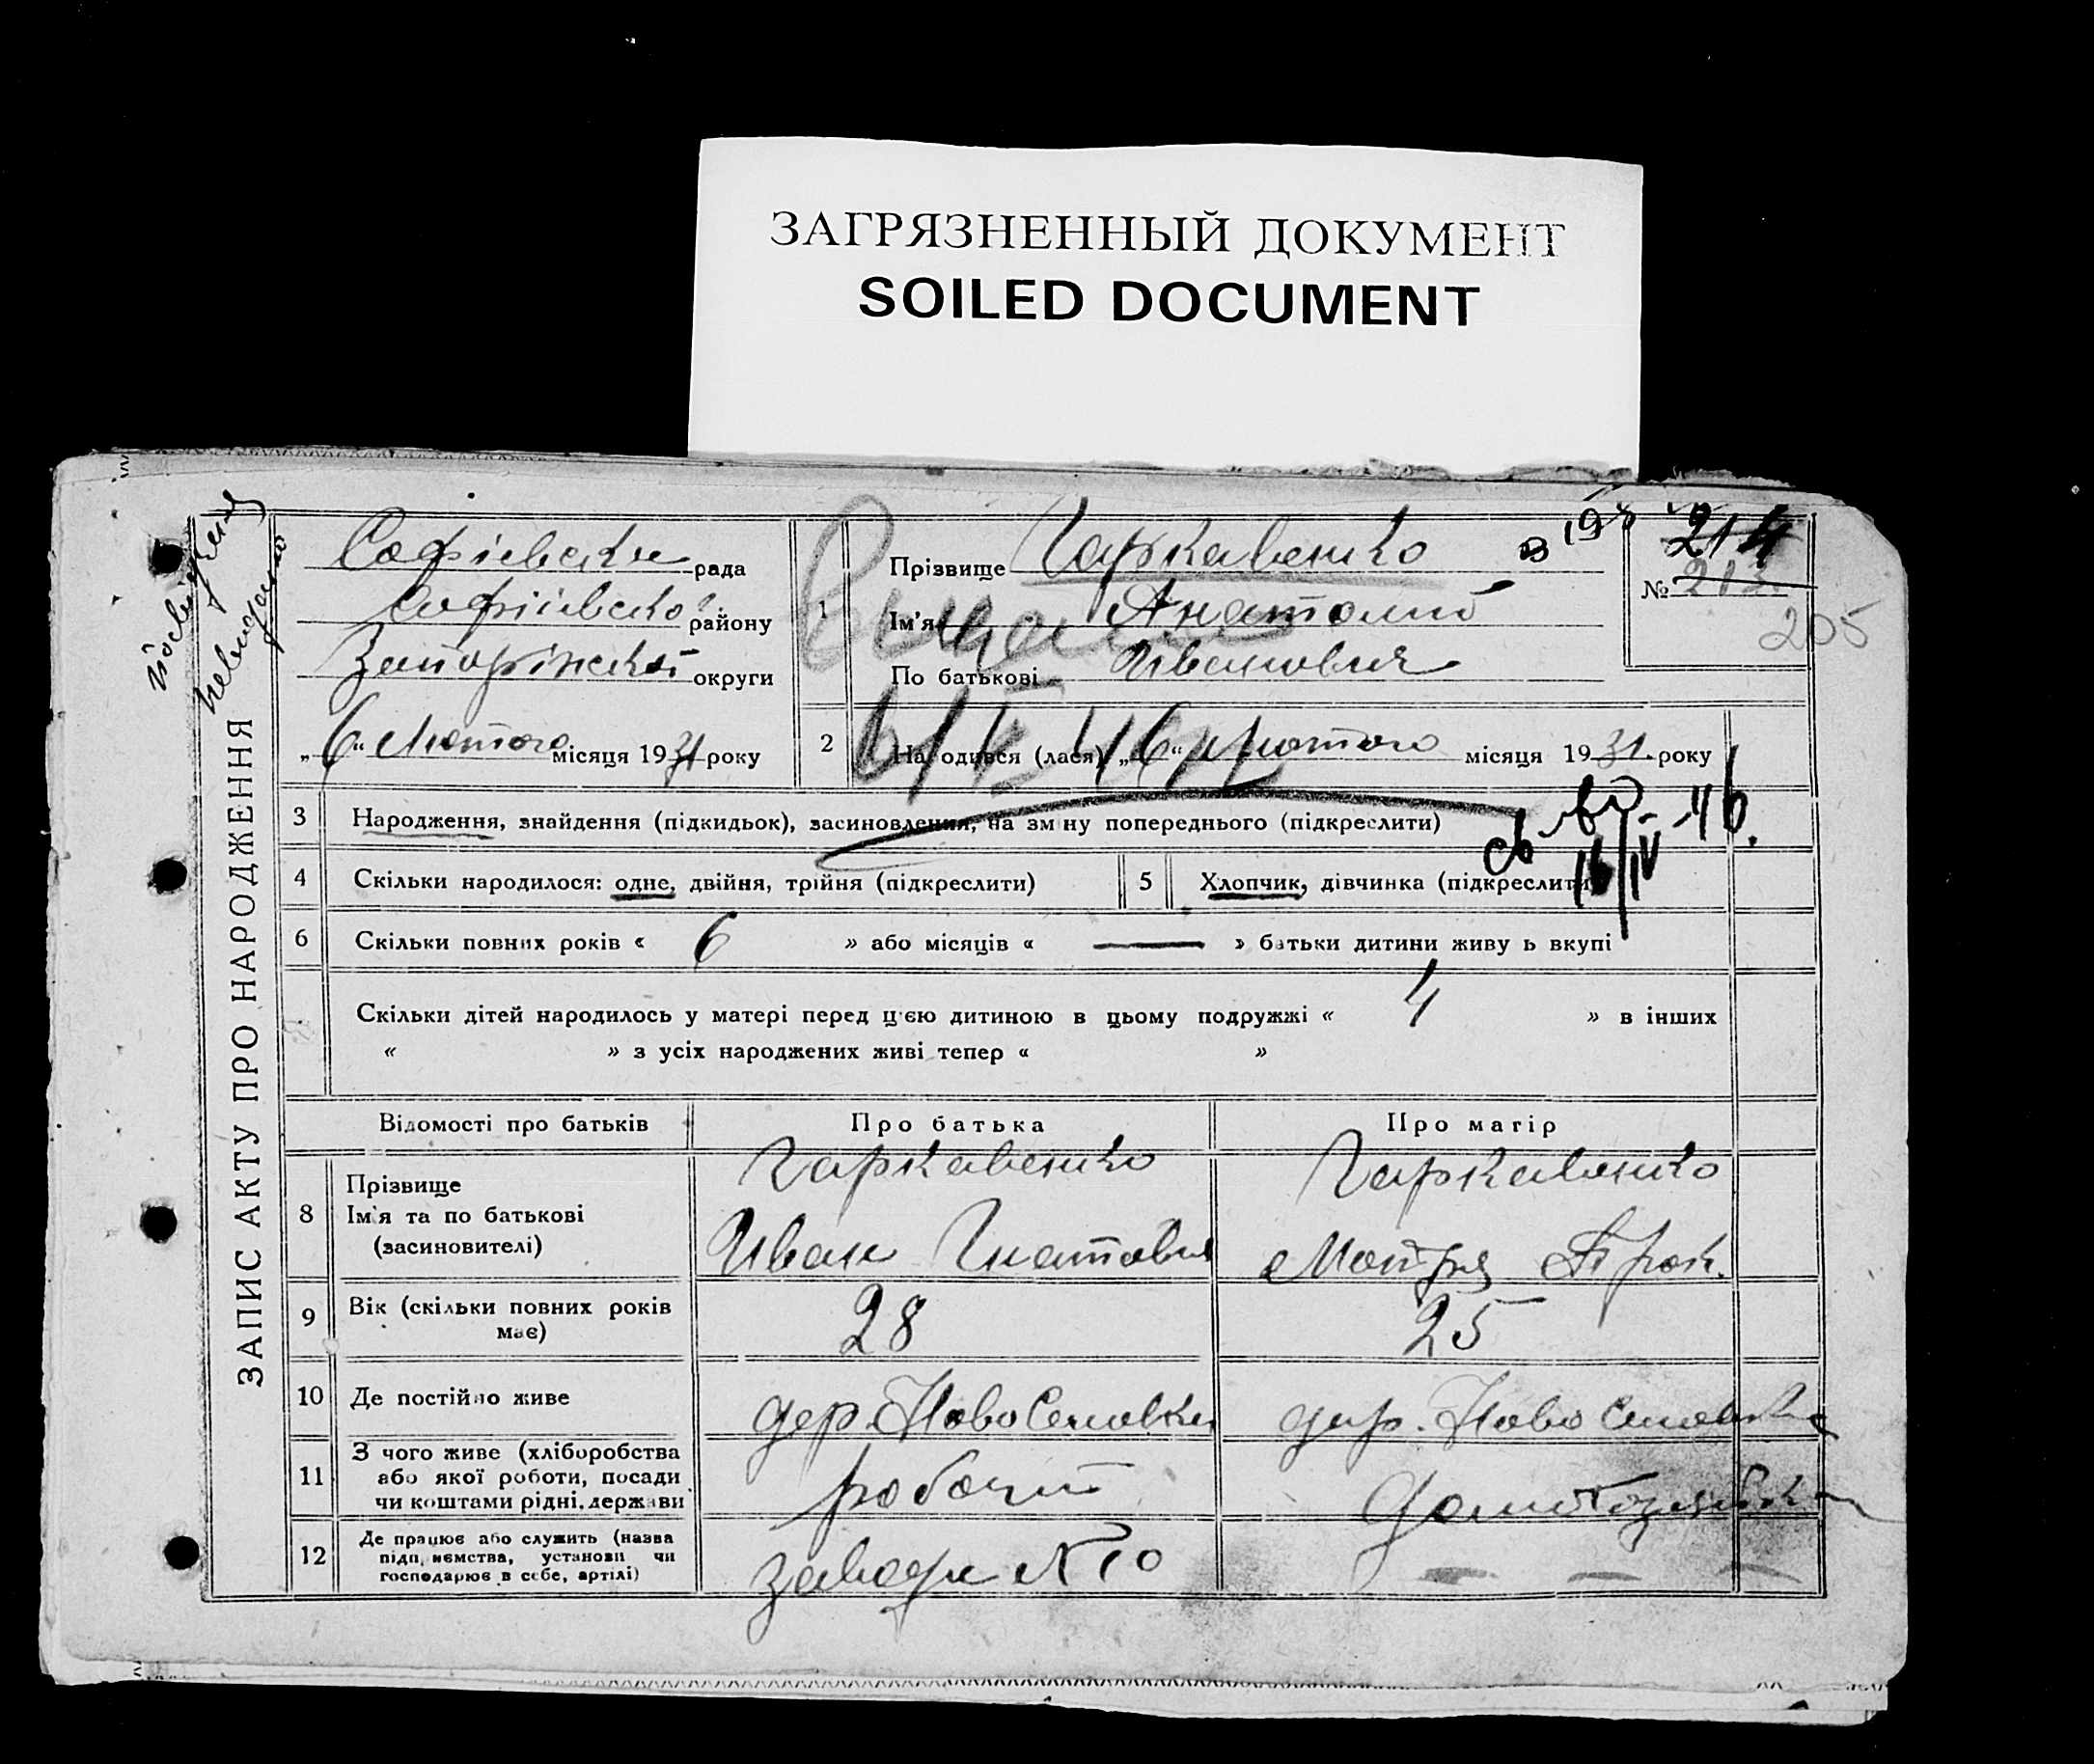 ЗАГРЯЗНЕННЫЙ ДОКУМЕНТ
SOILED DOCUMENT
ЗАПИС АКТУ ПРО НАРОДЖЕННЯ
Софіевська рада
Софіівської району
Запоріжської округи
„6“ Лютого місяця 1931 року
1
Прізвище Гаркавенко
Ім'я Анатолий
По батькові Иванович
№ 213
214
205
2 Народився (лася) „6“ Лютого місяця 1931 року
3 Народження, знайдення (підкидьок), засиновлення, на зміну попереднього (підкреслити)
4 Скільки народилося: одне, двійня, трійня (підкреслити)
5 Хлопчик, дівчинка (підкреслити
16/IV
46.
6 Скільки повних років « 6 » або місяців « — » батьки дитини живу ь вкупі
Скільки дітей народилось у матері перед цією дитиною в цьому подружжі « 4 » в інших
« » з усіх народжених живі тепер « »
Відомості про батьків Про батька Про матір
8 Прізвище
Ім'я та по батькові
(засиновителі)
Гаркавенко
Иван Гнатович
Гаркавенко
Мотря Прок.
9 Вік (скільки повних років має) 28 25
10 Де постійно живе дер. НовоСеловка дер. Ново Селовка
11 З чого живе (хліборобства
або якої роботи, посади
чи коштами рідні, держави
робочий
12 Де працює або служить (назва
підприємства, установи чи
господарює в себе, артілі)
завода №10 — — —